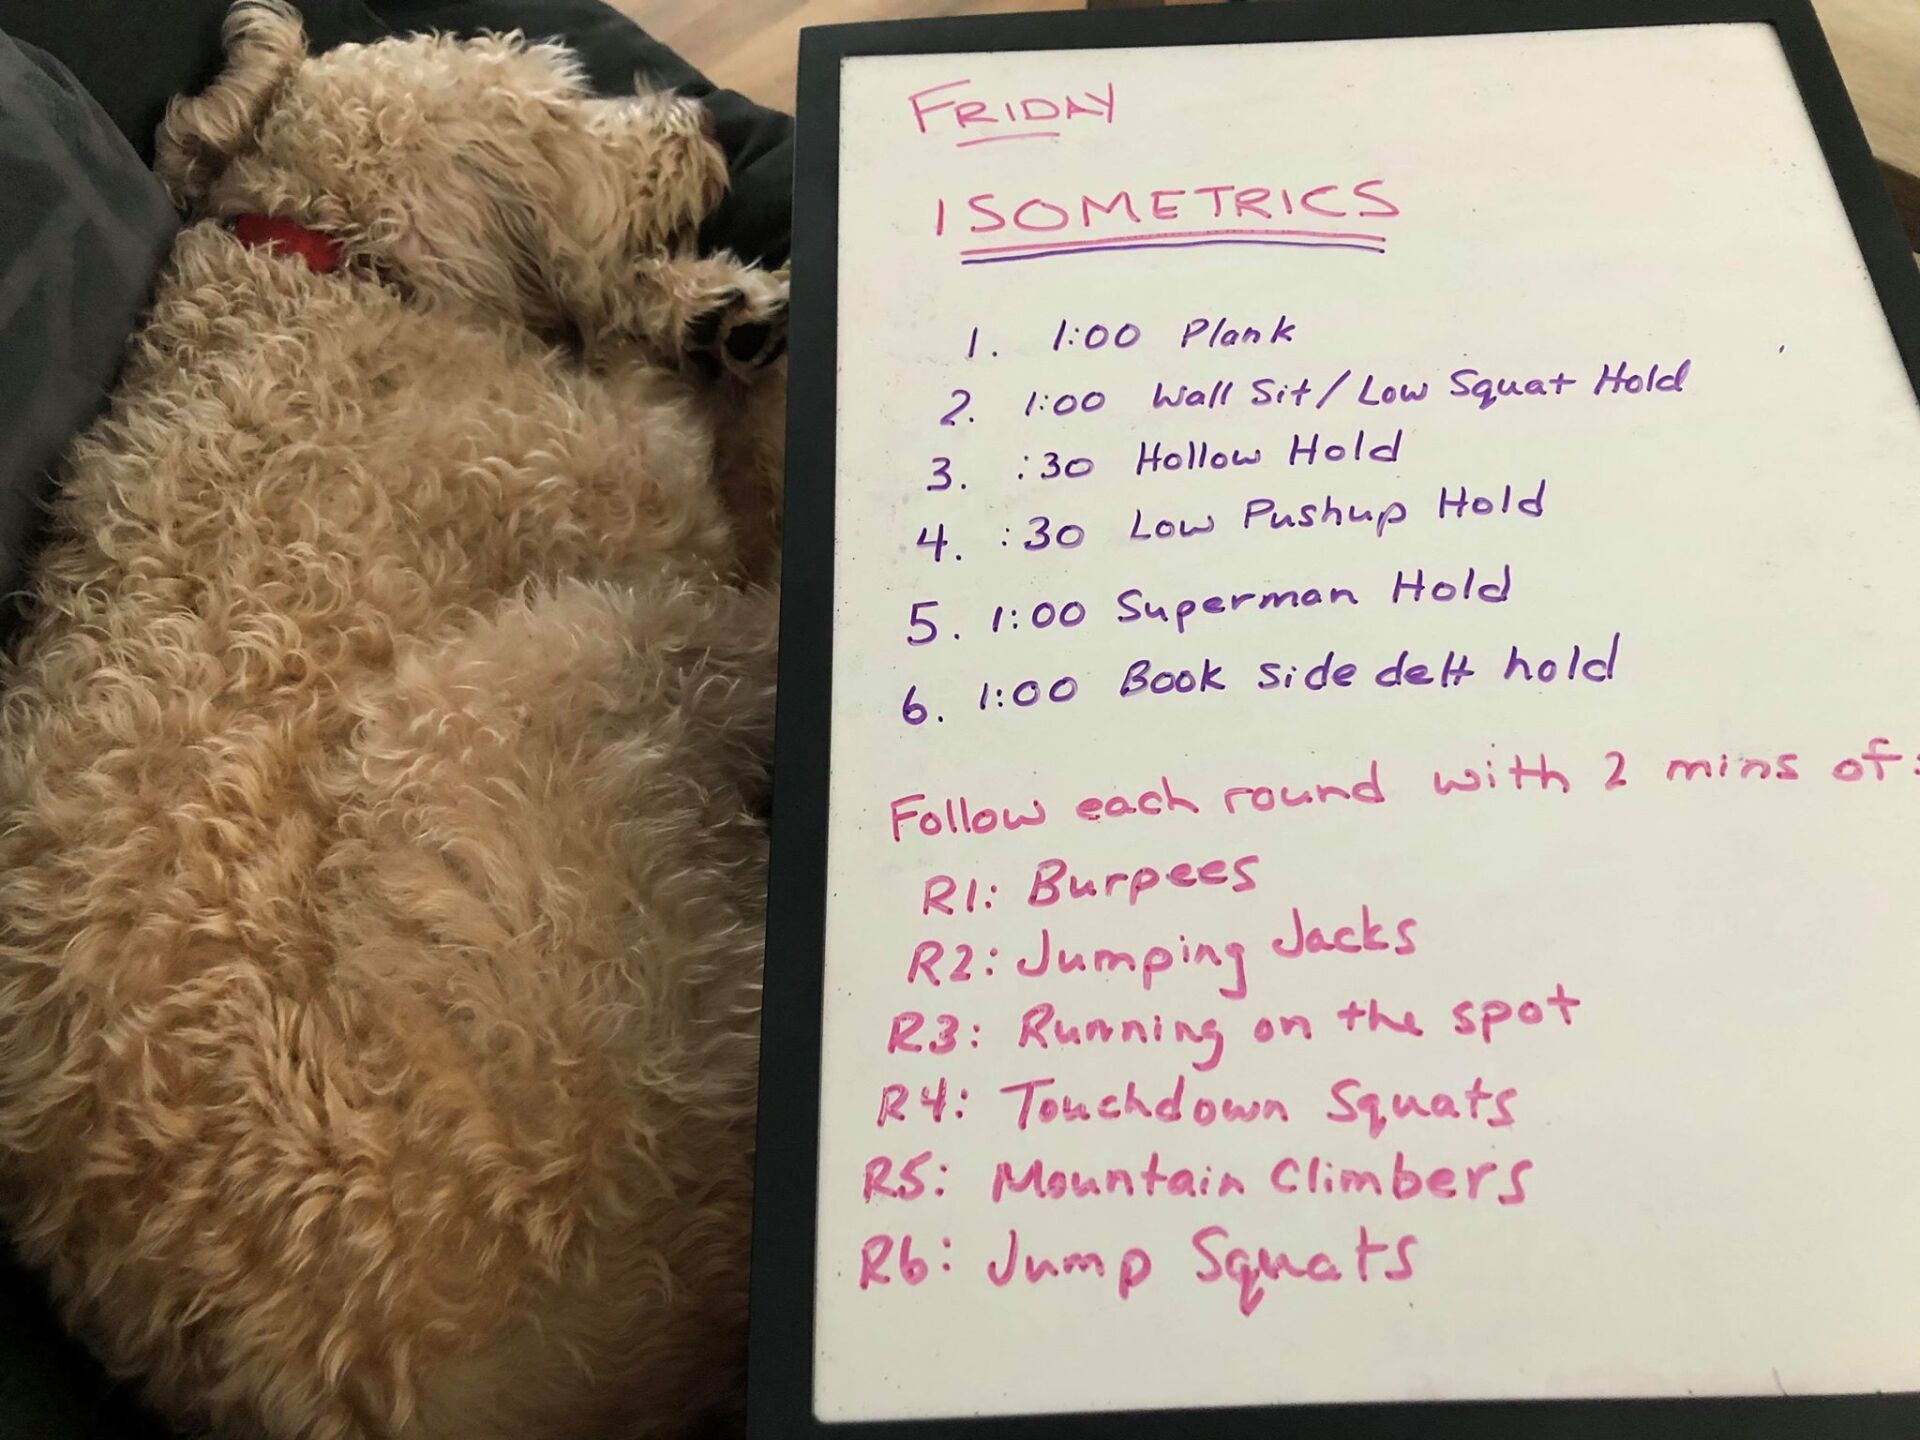 FRIDAY
ISOMETRICS
1. 1:00 Plank
2. 1:00 Wall Sit/Low Squat Hold
3. :30 Hollow Hold
4. :30 Low Pushup Hold
5. 1:00 Superman Hold
6. 1:00 Book side delt hold
Follow each round with 2 mins of:
R1: Burpees
R2: Jumping Jacks
R3: Running on the spot
R4: Touchdown Squats
R5: Mountain Climbers
R6: Jump Squats